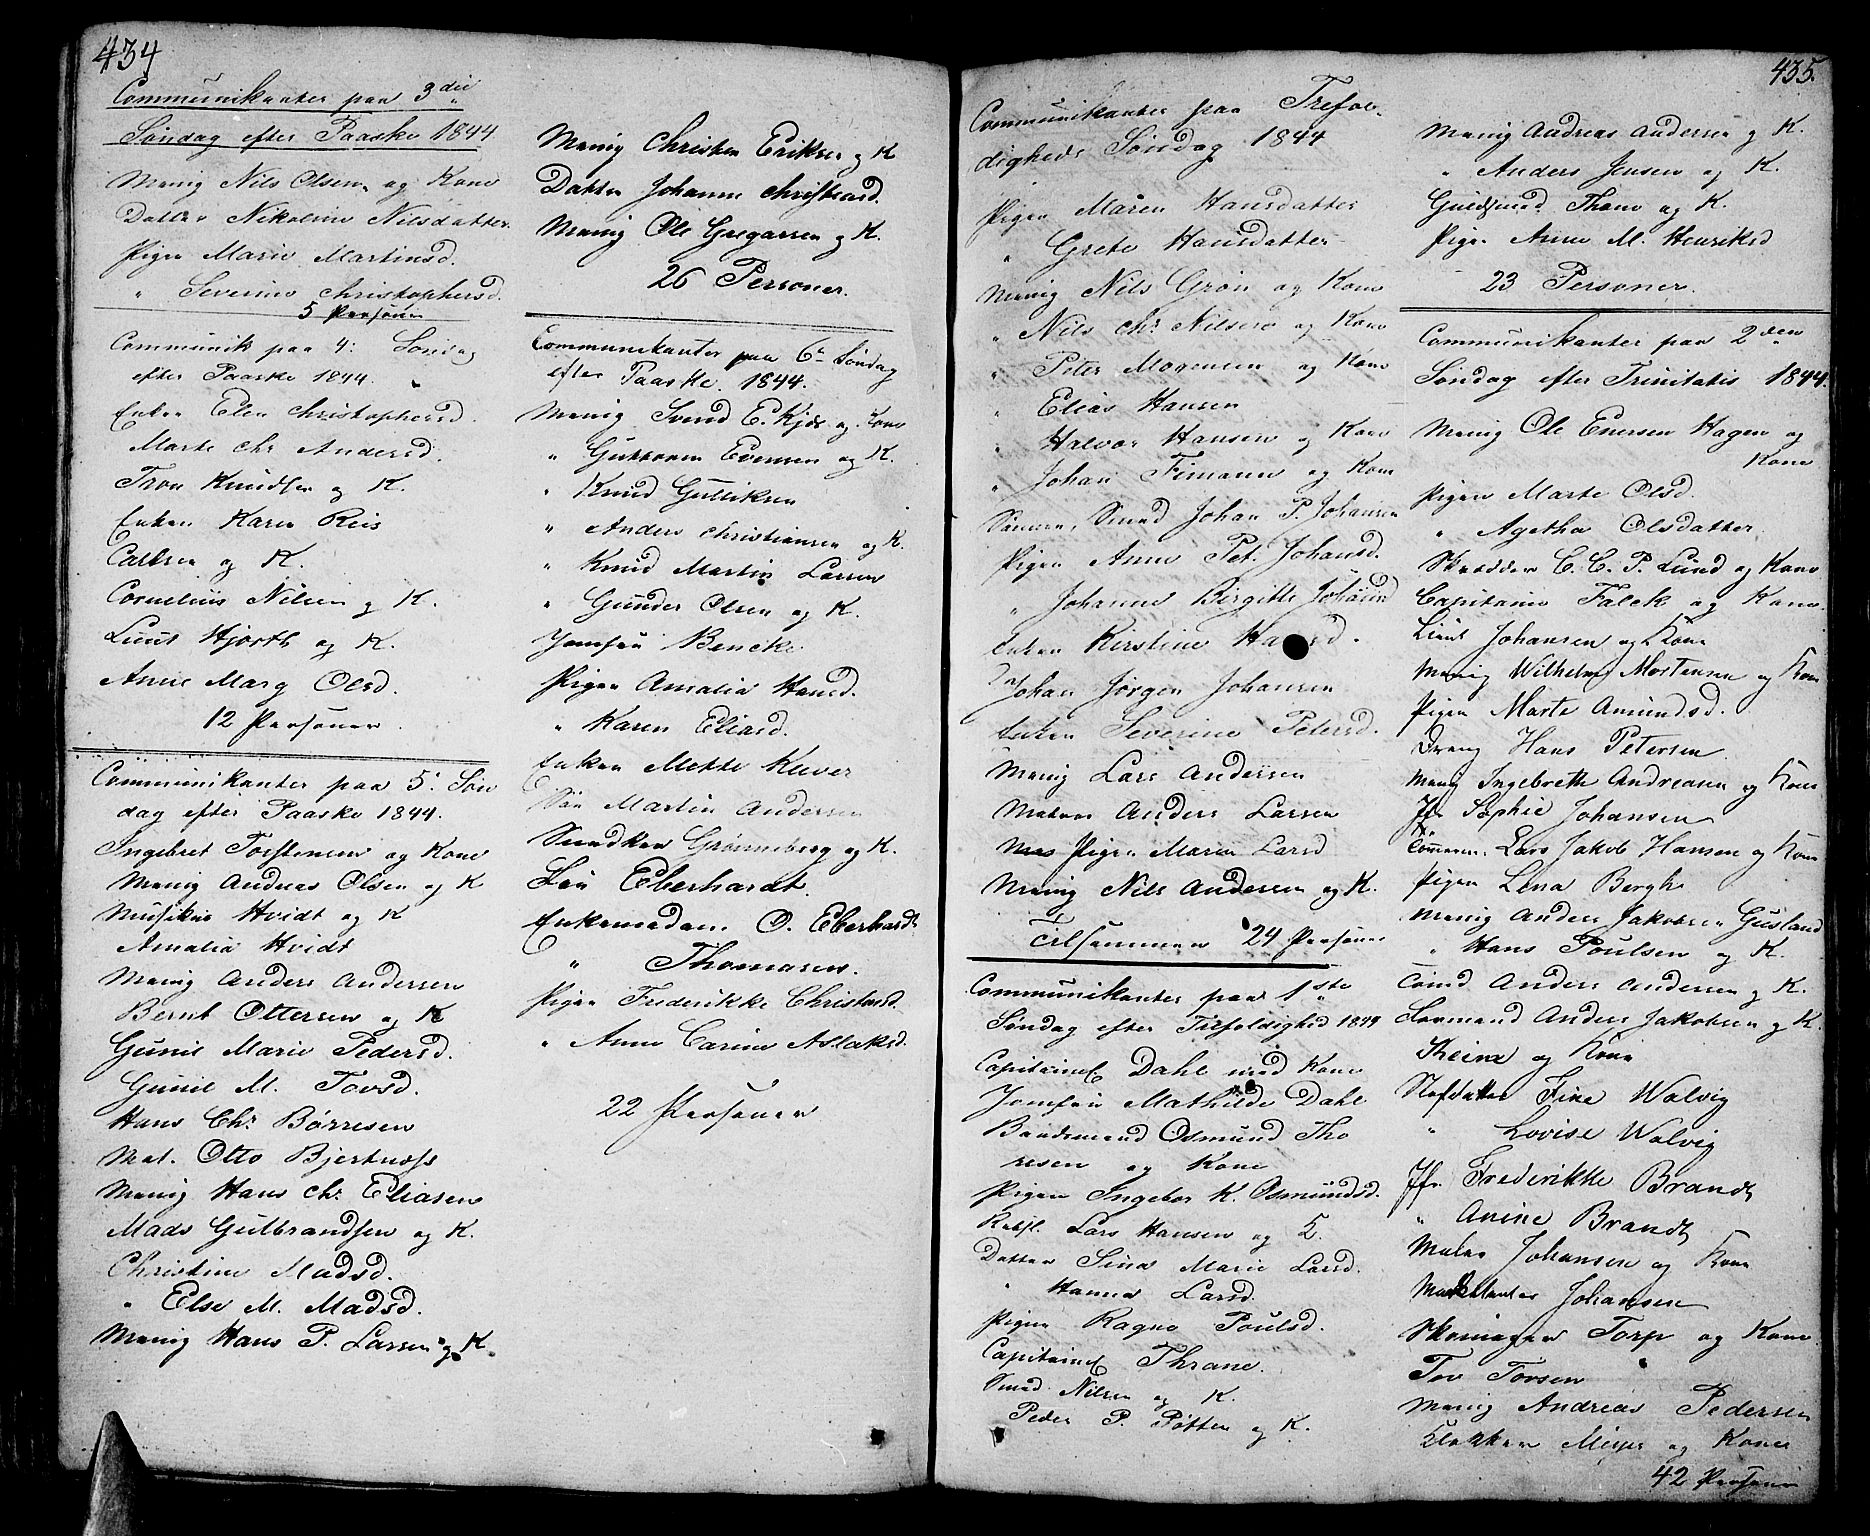 434
Communikanter paa 3die
Søndag efter Paaske 1844
Mænig Nils Olsen og Kone
Datter Nikoline Nilsdatter
Pigen Marie Martinsd.
" Severine Christophersd.
5 Personer
Communik paa 4: Søndag
efter Paaske 1844.
Enken Elen Christophersd.
Marte Chr Andersd.
Tron Knudsen og K.
Enken Karen Reis
og K.
Cornelius Nilsen og K.
Lieut Hjorth og K.
Anne Marg Olsd.
12 Personer
Communikanter paa 5: Søn
dag efter Paaske 1844.
Ingebret Torstensen og Kone
Mænig Andreas Olsen og K
Musikus Hvidt og K
Amalia Hvidt
Mænig Anders Andersen
Bernt Ottersen og K
Gunil Marie Pedersd.
Gunil M. Tovsd.
Hans Chr. Børresen
Mat. Otto Bjertnæss
Mænig Hans Chr. Eliasen
Mads Gulbrandsen og K.
Christine Madsd.
" Else M. Madsd.
Mænig Hans P. Larsen og K.
Mænig Christen Eriksen og K
Datter Johanne Christensd.
Mænig Ole Gregarsen og K.
26 Personer.
Communikanter paa 6te Søndag
efter Paaske 1844.
Mænig Svend E. Kjos og Kone
" Guttorm Evensen og K.
" Knud Gulliksen
" Anders Christiansen og K.
" Knud Martin Larsen
" Gunder Olsen og K.
Jomfru Bencke
Pigen Amalia Hansd.
" Karen Eliasd.
Enken Mette Kuver
Søn Martin Andersen
Smedken Grønneberg og K.
Frk Eberhardt.
Enkemadam O. Eberhardt
" Thomasen.
Pigen Frederikke Christensd.
" Anne Carine Aslaksd.
22 Personer
435.
Communikanter paa Trefol-
digheds Søndag 1844
Pigen Maren Hansdatter
" Grete Hansdatter
Mænig Nils Grøn og Kone
" Nils Chr. Nilsen og Kone
" Peter Mogensen og Kone
" Elias Hansen
" Halvor Hansen og Kone
" Johan Fimann og Kone
Sønnen, Smed Johan P. Johansen
Pigen Anne Pet. Johansd.
" Johanne Birgitte Johansd
Enken Kirstine Hansd.
Johan Jørgen Johansen
Enken Severine Petersd.
Mænig Lars Andersen
Matros Anders Larsen
Pigen Maren Larsd
Mænig Nils Andersen og K.
Tilsammen 24 Personer
Communikanter paa 1ste
Søndag efter Trefoldighed 1844
Capitaine Dahl med Kone
Jomfru Mathilde Dahl
Baadsmand Osmund Tho
resen og Kone
Pigen Ingebor K. Osmundsd.
Lars Hansen og K.
Datter Sina Marie Larsd.
" Hanna Larsd.
Pigen Ragne Poulsd.
Capitaine Thrane.
Smed Nilsen og K.
Peder P. Potten og K.
Mænig Andreas Andersen og K.
" Anders Jensen og K.
Guldsmed Thane og K.
Pigen Anne M. Henriksd
23 Personer.
Communikanter paa 2den
Søndag efter Trinitatis 1844.
Mænig Ole Enersen Hagen og
Kone
Pigen Marte Olsd.
" Agethe Olsdatter
Skrædder C. C. P. Lund og Kone
Capitaine Falck og Kone.
Lieut Johansen og Kone
Mænig Wilhelm Mortensen og Kone
Pigen Marte Amundsd.
Dreng Hans Petersen
Mænig Ingebreth Andreasen og Kone
Jfr Sophie Johansen
Tømmerm. Lars Jakob Hansen og Kone
Pigen Lena Bergh
Mænig Anders Jakobsen Gusland
" Hans Poulsen og K.
Tømd Anders Andersen og K.
Formand Anders Jakobsen og K.
Kheine og Kone
Stifdatter Fine Walvig
" Lovise Walvig
Jfr Frederikke Brandt
" Anine Brandt
Maler Johansen og Kone
Marketenter Johansen
Skoemager Torp og Kone
Tov Tovsen
Mænig Andreas Pedersen
Klokker Meyer og Kone
42 Personer